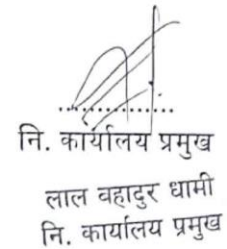 नि. कार्यालय प्रमुख
लाल बहादुर धामी
नि. कार्यालय प्रमुख